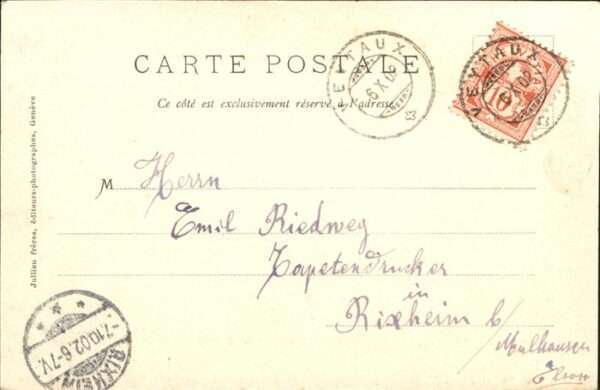 VEYTAUX
6 X 02
VEYTAUX
6 X 02
10
CARTE POSTALE
Ce côté est exclusivement réservé à l'adresse.
Jullien frères, éditeurs-photographes, Genève
M Herrn
Emil Riedweg
Tapetendrucker
in
Rixheim b/
Mulhausen
Elsass
7.10.02.6-7V.
RIXHEIM